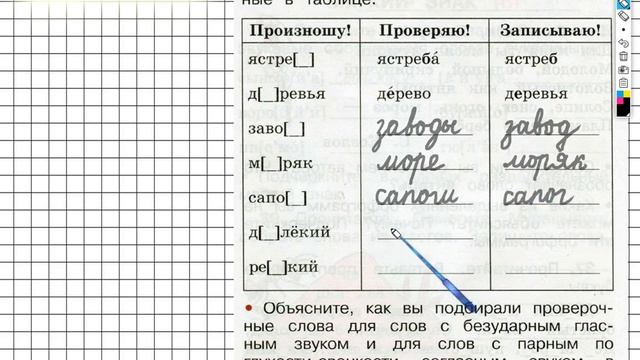 ные в таблице.
Произношу! Проверяю! Записываю!
ястре[_] ястреба́ ястреб
д[_]ревья де́рево деревья
заво[_] заводы завод
м[_]ряк море моряк
сапо[_] сапоги сапог
д[_]лёкий
ре[_]кий
• Объясните, как вы подбирали провероч-
ные слова для слов с безударным глас-
ным звуком и для слов с парным по